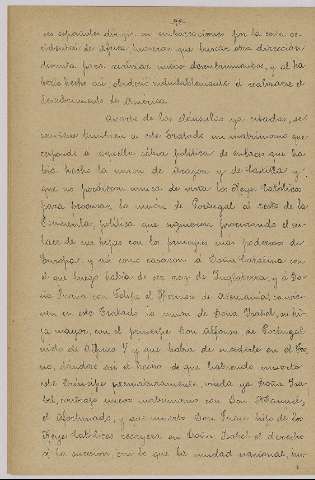 les españoles dirigir sus embarcaciones por la costa oc-
cidental de Africa, tuvieron que buscar otra dirección
distinta para realizar nuevos descubrimientos, y al ha-
berlo hecho así, obedeció indudablemente el realizarse el
descubrimiento de América.
Aparte de las cláusulas ya citadas, se
concierta también en este Tratado un matrimonio que
responde a aquella sabia política de enlaces que ha-
bía hecho la unión de Aragón y de Castilla y
que no perdieron nunca de vista los Reyes Católicos
para procurar la unión de Portugal al resto de la
Península, política que siguieron procurando el en-
lace de sus hijas con los príncipes más poderosos de
Europa, y así como casaron a Doña Catalina con
el que luego había de ser rey de Inglaterra, y a Do-
ña Juana con Felipe el Hermoso de Alemania, convi-
nieron en este Tratado la unión de Doña Isabel, su hi-
ja mayor, con el príncipe Don Alfonso de Portugal
nieto de Alfonso V y que había de sucederle en el Tro-
no, dándose así el hecho de que habiendo muerto
este Príncipe prematuramente, viuda ya Doña Isa-
bel, contrajo nuevo matrimonio con Don Manuel,
el Afortunado, y al muerto Don Juan hijo de los
Reyes Católicos recayera en Doña Isabel el derecho
a la sucesión con lo que la unidad nacional,